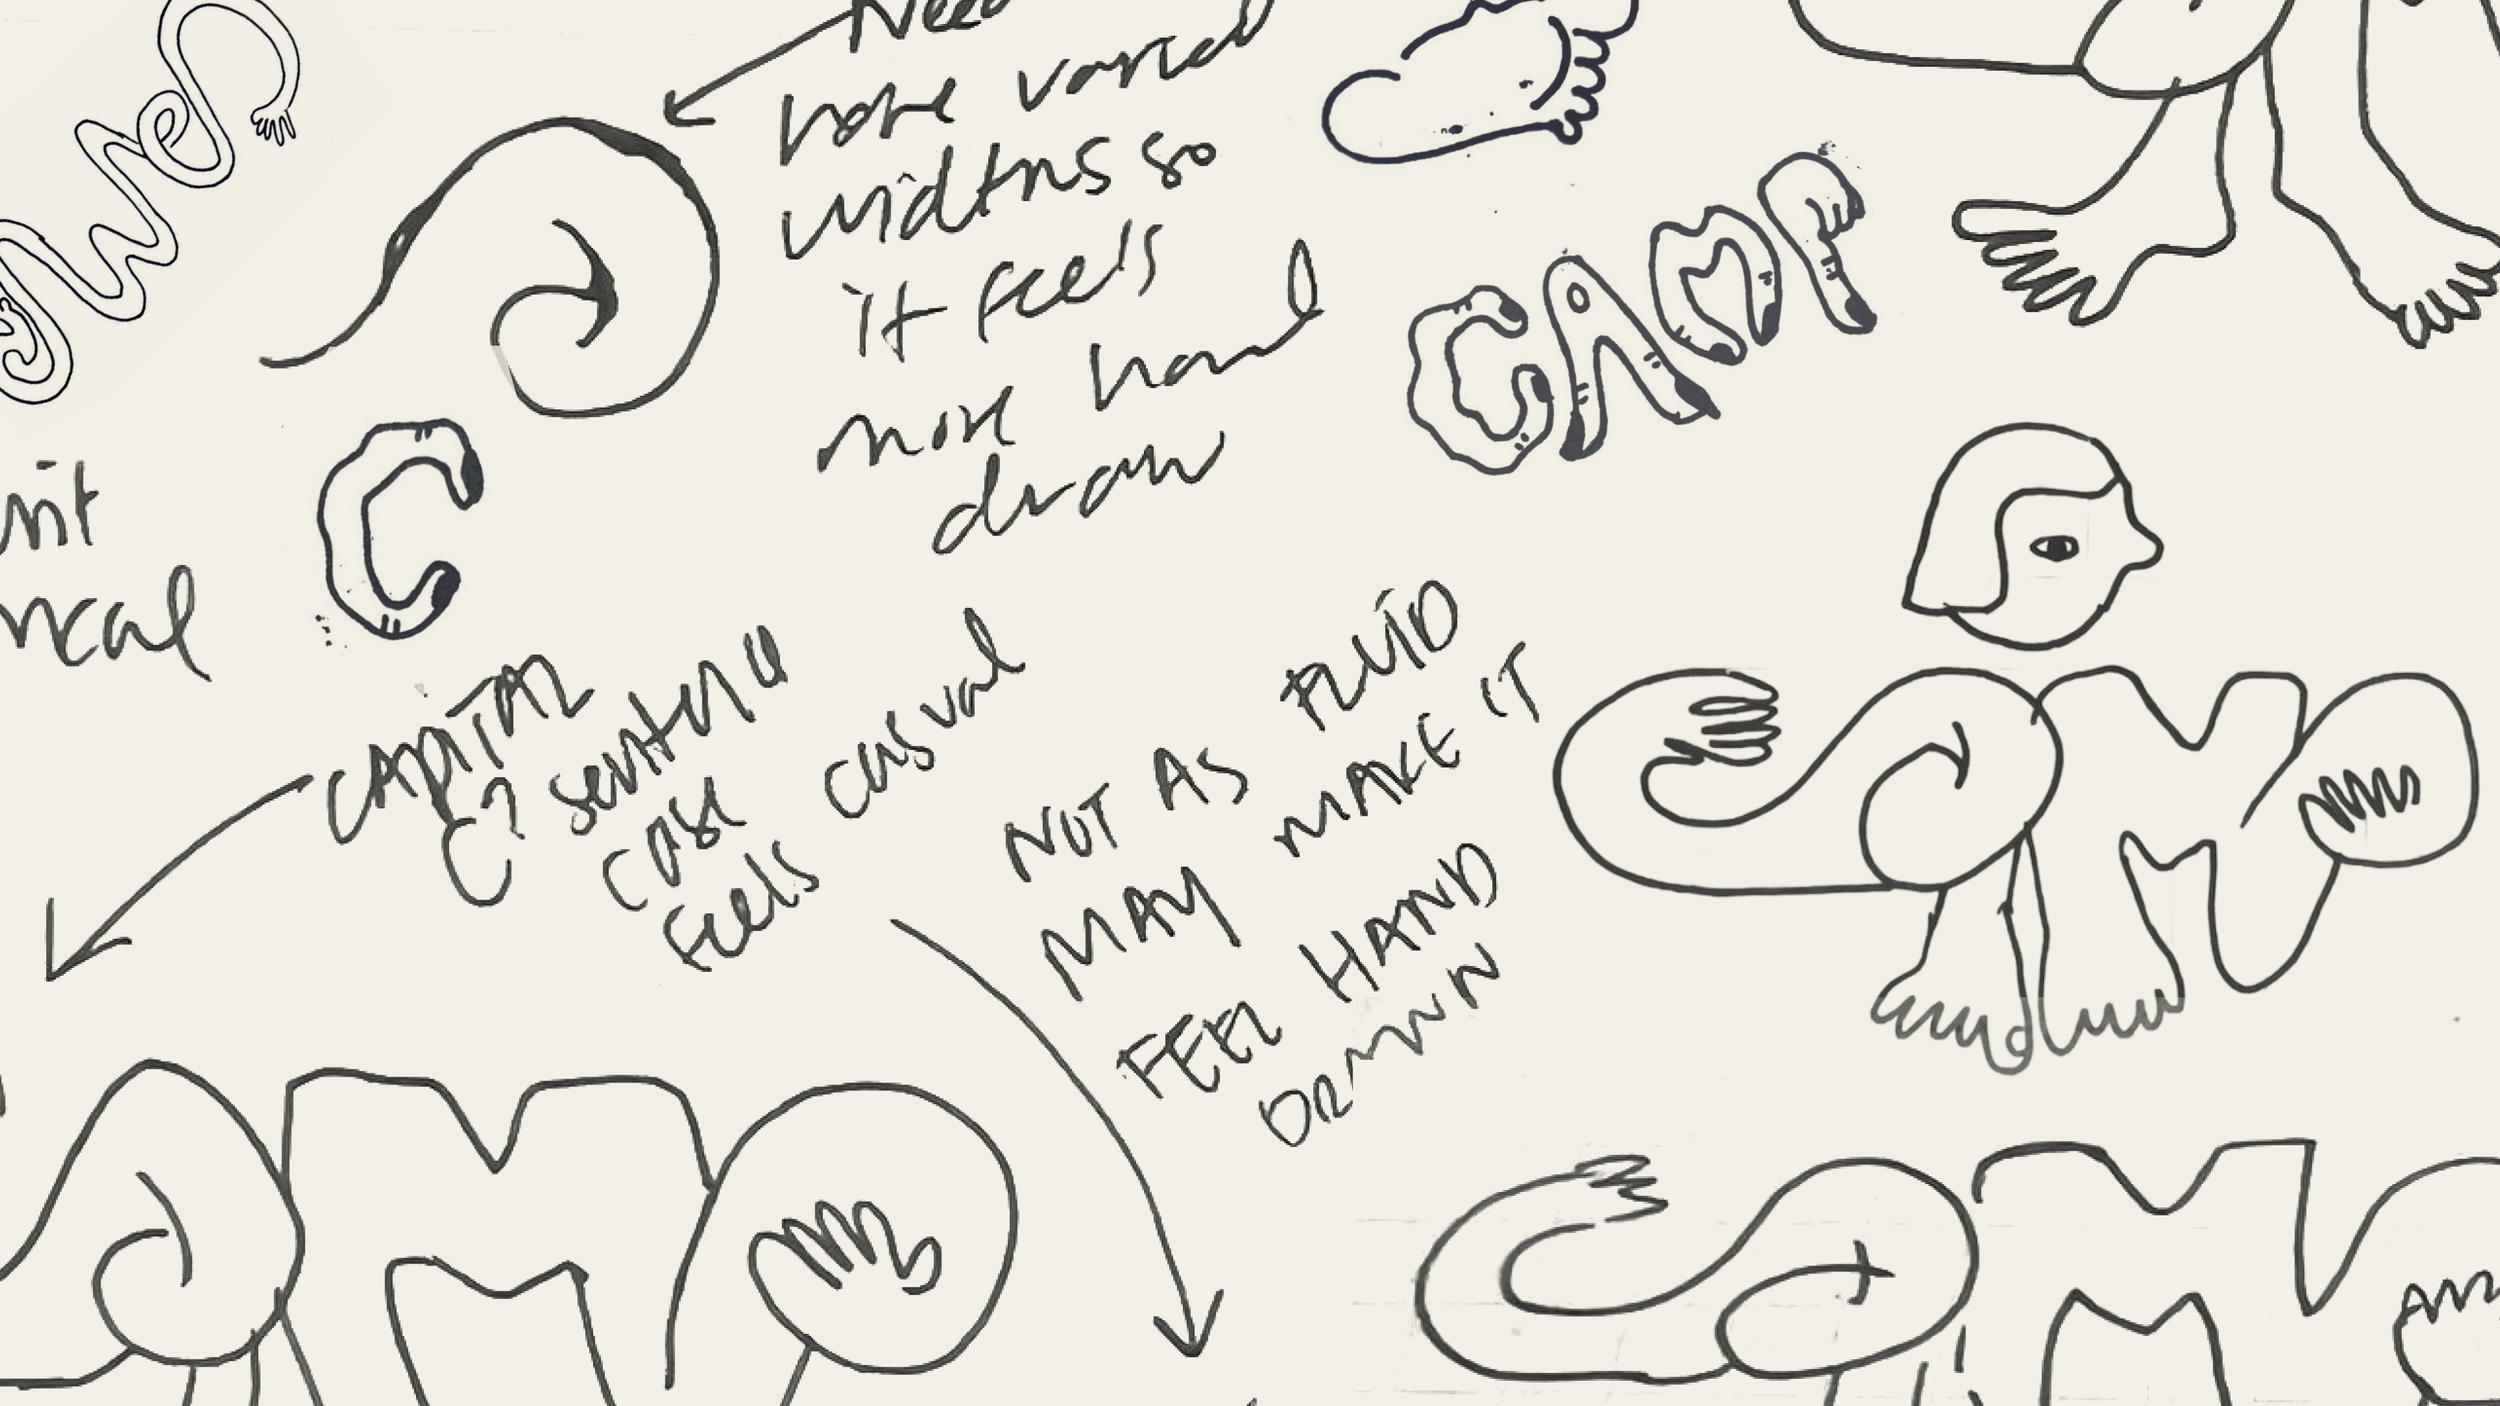 Need
more varied
widths so
it feels
more hand
draw
CAMP
C
CAPITAL
C? sentence
case
feels casual
NOT AS FLUID
MAY MAKE IT
FEEL HAND
DRAWN
CAMP